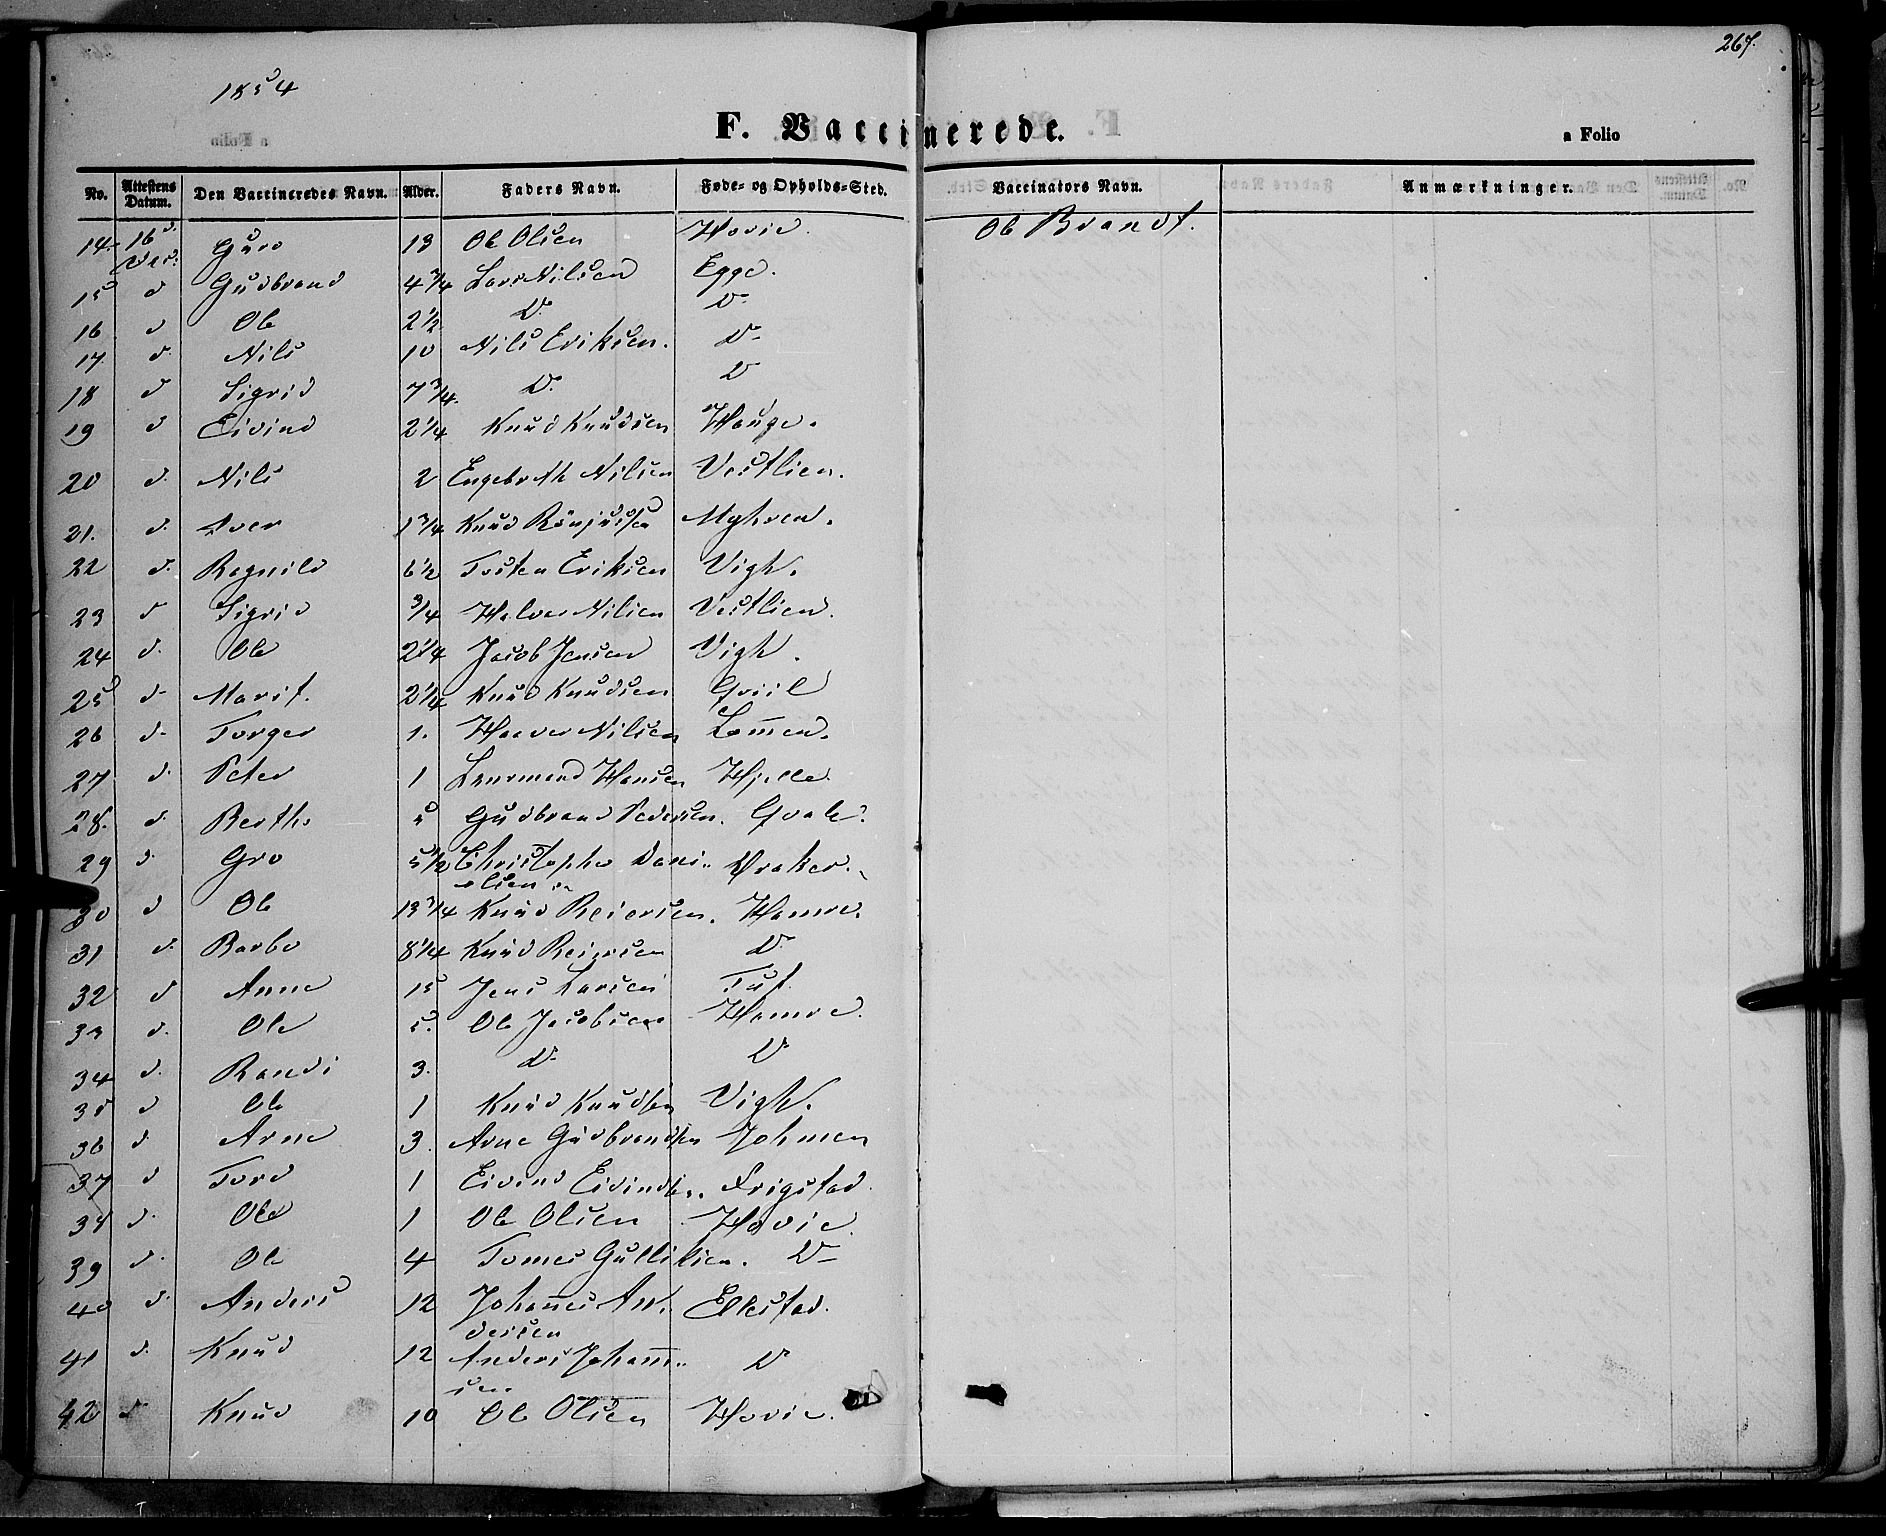 267.
1854
F. Vaccinerede.
a Folio
No. Attestens Datum. Den Vaccineredes Navn. Alder. Faders Navn. Føde- og Opholds-Sted. Vaccinators Navn. Anmærkninger.
14. 16 d. Guro 13 Ole Olsen Hovie. Ole Brandt.
15 d Gudbrand 4 3/4 Lars Nilsen Egge.
16 d Ole 2 1/2 D. D.
17. d. Nils 10 Nils Eriksen. D.
18 d Sigrid 7 3/4. D. D
19 d Eivind 2 1/4 Knud Knudsen Hauge.
20 d. Nils 2 Engebreth Nilsen Vestlien.
21. d. Iver 1 3/4 Knud Myhren.
22 d. Ragnild 6 1/2 Tosten Eriksen Vigh.
23 d Sigrid 3/4 Halvor Nilsen Vestlien.
24 d. Ole 2 1/4 Jacob Jensen Vigh.
25 d. Marit. 2 1/4 Knud Knudsen Qviil
26 d. Torger 1. Haavor Nilsen Lom̄en.
27 d. Peter 1 Hansen Hjelle
28. d. Berthe 5 Gudbrand Pedersen. Qvale.
29 d. Gro 5 1/2 Christopher Dani- Draker.
elsen
30 d Ole 13 3/4 Knud Reiersen. Hamre.
31 d. Barbo 8 1/4 Knud Reiersen D.
32 d Anne 15 Jens Larsen Tuf
33 d. Ole 5. Ole Jacobsen Hamre.
34 d. Randi 3. D. D.
35 d Ole 1 Knud Knudsen Vigh.
36 d. Arne 3. Arne Gudbrandsen Johmen
37 d Tord 1 Eivind Eivindsen. Frigstad.
38 d. Ole 1 Ole Olsen Hovie.
39 d. Ole 4 Tomes Gullików. D.
40 d. Anders 12 Johan̄es An-
dersen Ellestad.
41 d. Knud 12 Anders Joham̄-
sen D.
42 d. Knud 10 Ole Olsen Hovie.